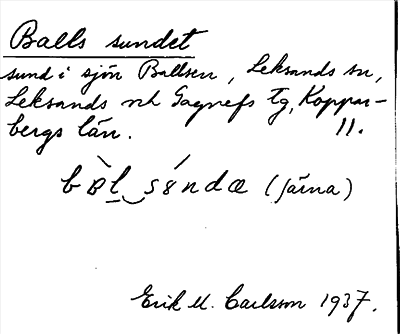 Balls sundet
sund i sjön Ballsen, Leksands sn,
Leksands och Gagnefs tg, Koppar-
bergs län. 11.
bɒ̀l‿sǿndæ (Järna)
Erik M. Carlsson 1937.